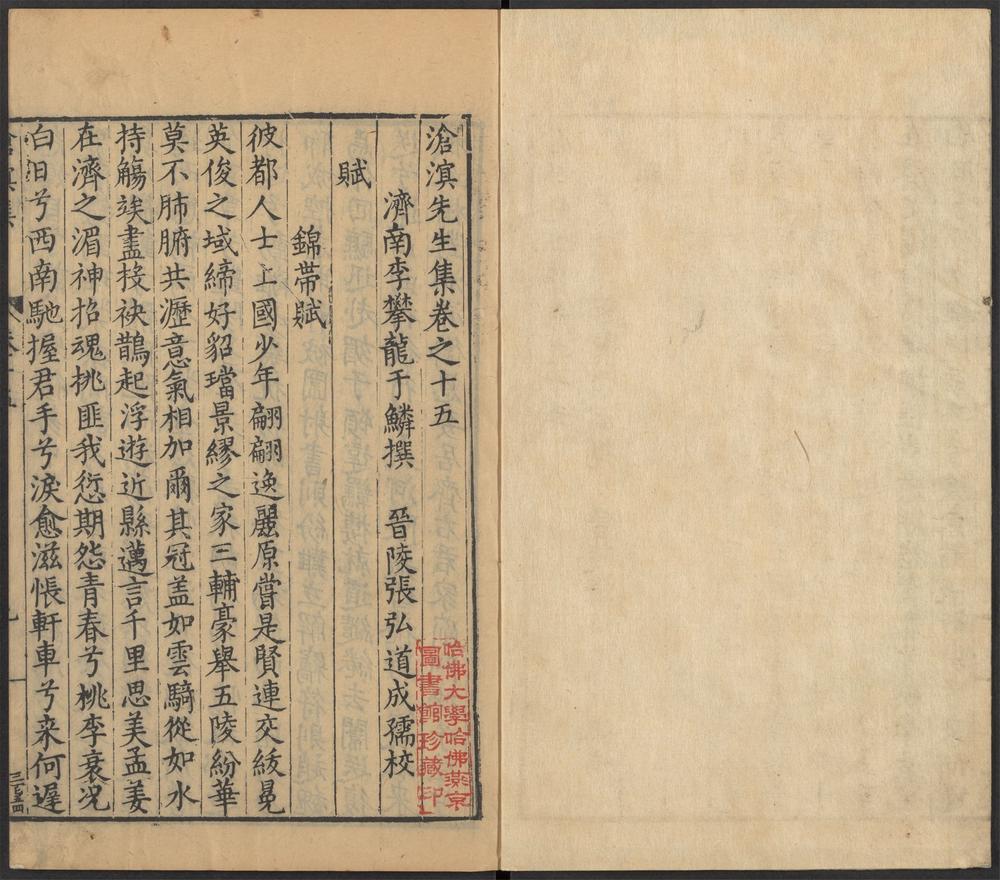 滄溟先生集卷之十五
濟南李攀龍于鱗撰 晉陵張弘道成孺校
賦
錦帶賦
彼都人士上國少年翩翩逸麗原嘗是賢連交綾冕
英俊之域締好貂璫景繆之家三輔豪舉五陵紛華
莫不肺腑共瀝意氣相加爾其冠盖如雲騎從如水
持觴竢盡投袂鵲起浮遊近縣邁言千里思美孟姜
在濟之湄神招魂挑匪我愆期怨青春兮桃李衰況
白日兮西南馳握君手兮淚愈滋悵軒車兮来何遲
哈佛大學哈佛燕京
圖書館珍藏印